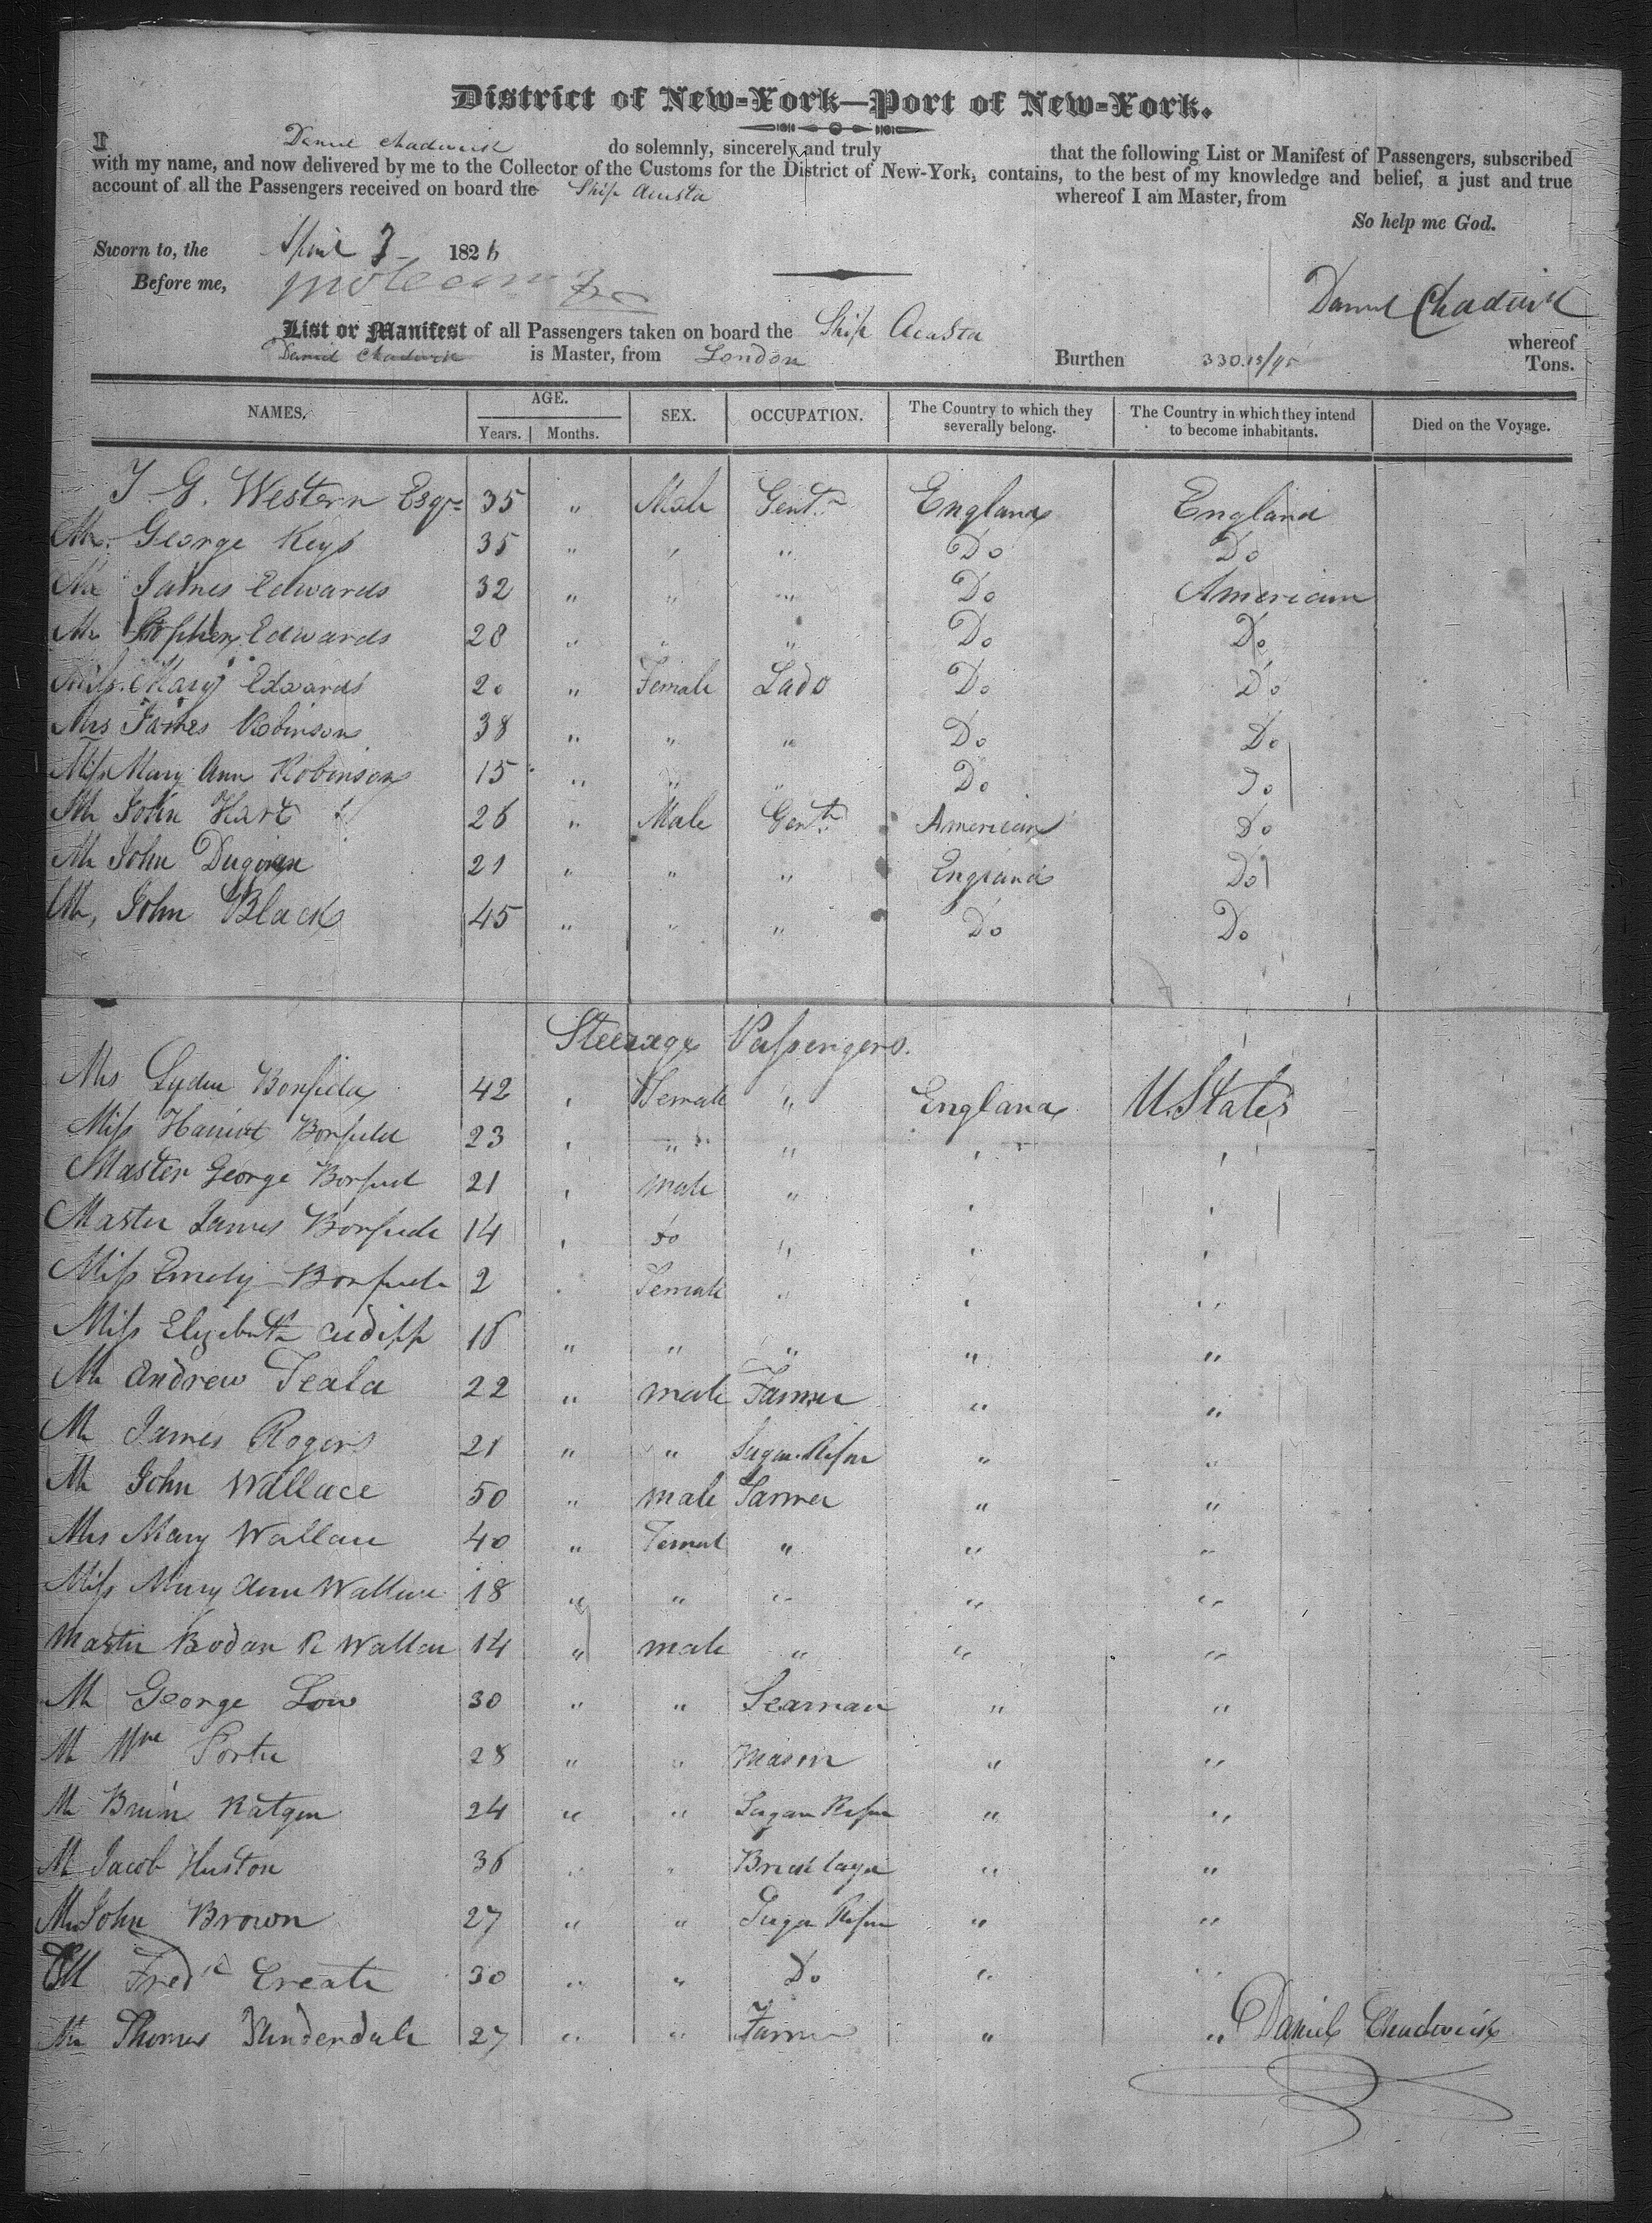 District of New-York—Port of New-York.
I Daniel Chadwick do solemnly, sincerely and truly that the following List or Manifest of Passengers, subscribed
with my name, and now delivered by me to the Collector of the Customs for the District of New-York, contains, to the best of my knowledge and belief, a just and true
account of all the Passengers received on board the Ship Acasta whereof I am Master, from
So help me God.
Sworn to, the April 3 1826
Before me,
Daniel Chadwick
List or Manifest of all Passengers taken on board the Ship Acasta whereof
Daniel Chadwick is Master, from London Burthen 330 Tons.
NAMES. AGE. Years. Months. SEX. OCCUPATION. The Country to which they severally belong. The Country in which they intend to become inhabitants. Died on the Voyage.
G. Western Esqr 35 " Male Gentn England England
Mr George Keys 35 " " " Do Do
Mr James Edwards 32 " " " Do American
Mr Stephen Edwards 28 " " " Do Do
Miss Mary Edwards 20 " Female Lady Do Do
Mrs James Robinson 38 " " " Do Do
Miss Mary Ann Robinson 15 " " " Do Do
Mr John Hart 26 " Male Gentn American Do
Mr John 21 " " " England Do
Mr John Black 45 " " " Do Do
Steerage Passengers.
Mrs Lydia Bonfield 42 " Female " England U. States
Miss Harriot Bonfield 23 " " " " "
Master George Bonfield 21 " male " " "
Master James Bonfield 14 " do " " "
Miss Emely Bonfield 2 " Female " " "
Miss Elizabeth Cudipp 16 " " " " "
Mr Andrew Teala 22 " male Farmer " "
Mr James Rogers 21 " " Sugar Refiner " "
Mr John Wallace 50 " male Farmer " "
Mrs Mary Wallace 40 " Female " " "
Miss Mary Ann Wallace 18 " " " " "
Master R Wallace 14 " male " " "
Mr George Low 30 " " Seaman " "
Mr Wm Porter 28 " " Mason " "
Mr Ratgen 24 " " Sugar Refiner " "
Mr Jacob Huston 36 " " Bricklayer " "
Mr John Brown 27 " " Sugar Refiner " "
Mr Fredk Create 30 " " Do " "
Mr Thomas Sunderdale 27 " " Farmer " "
Daniel Chadwick